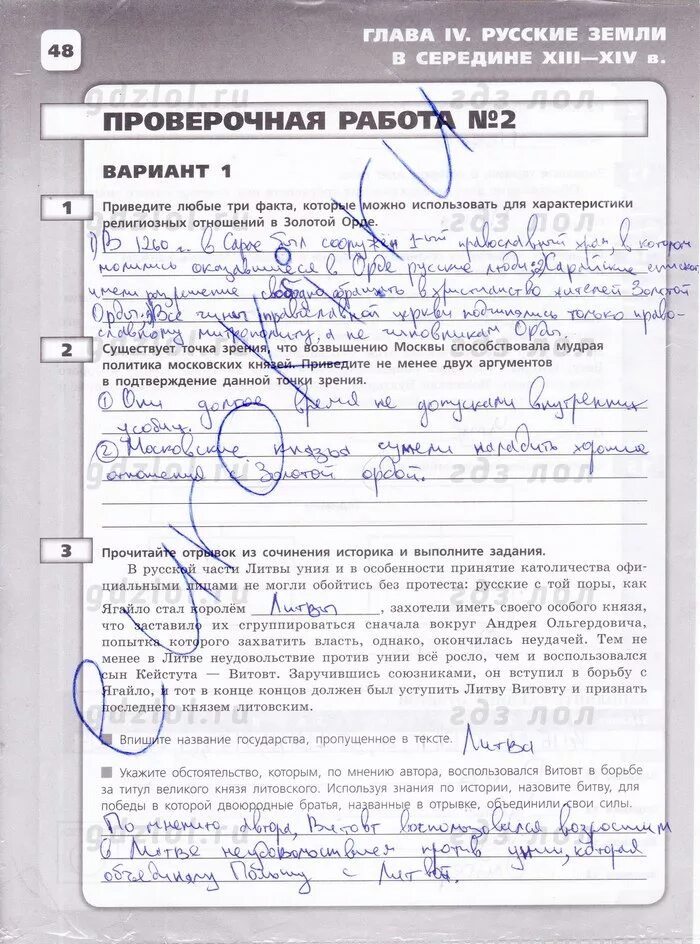 48
ГЛАВА IV. РУССКИЕ ЗЕМЛИ
В СЕРЕДИНЕ XIII—XIV в.
gdzlol.ru гдз лол
ПРОВЕРОЧНАЯ РАБОТА №2
ВАРИАНТ 1
1
Приведите любые три факта, которые можно использовать для характеристики
религиозных отношений в Золотой Орде.
1) В 1260 г. в Сарае был сооружён 1-ый православный храм, в котором
молились оказавшиеся в Орде русские люди. 2) Сарайские
имели разрешение свободно обращать в христианство жителей Золотой
Орды. 3) Все чины православной церкви подчинялись только право-
славному митрополиту, а не чиновникам Орды.
2
Существует точка зрения, что возвышению Москвы способствовала мудрая
политика московских князей. Приведите не менее двух аргументов
в подтверждение данной точки зрения.
① Они долгое время не допускали внутренних
усобиц.
② Московские князья сумели наладить хорошие
отношения с Золотой ордой.
gdzlol.ru гдз лол
3
Прочитайте отрывок из сочинения историка и выполните задания.
В русской части Литвы уния и в особенности принятие католичества офи-
циальными лицами не могли обойтись без протеста: русские с той поры, как
Ягайло стал королём Литвы, захотели иметь своего особого князя,
что заставило их сгруппироваться сначала вокруг Андрея Ольгердовича,
попытка которого захватить власть, однако, окончилась неудачей. Тем не
менее в Литве неудовольствие против унии всё росло, чем и воспользовался
сын Кейстута — Витовт. Заручившись союзниками, он вступил в борьбу с
Ягайло, и тот в конце концов должен был уступить Литву Витовту и признать
последнего князем литовским.
gdzlol.ru гдз лол
Впишите название государства, пропущенное в тексте. Литва
Укажите обстоятельство, которым, по мнению автора, воспользовался Витовт в борьбе
за титул великого князя литовского. Используя знания по истории, назовите битву, для
победы в которой двоюродные братья, названные в отрывке, объединили свои силы.
По мнению автора, Витовт воспользовался возросшим
в Литве неудовольствием против унии, которая
объединяла Польшу с Литвой.
gdzlol.ru гдз лол
euroki.ru